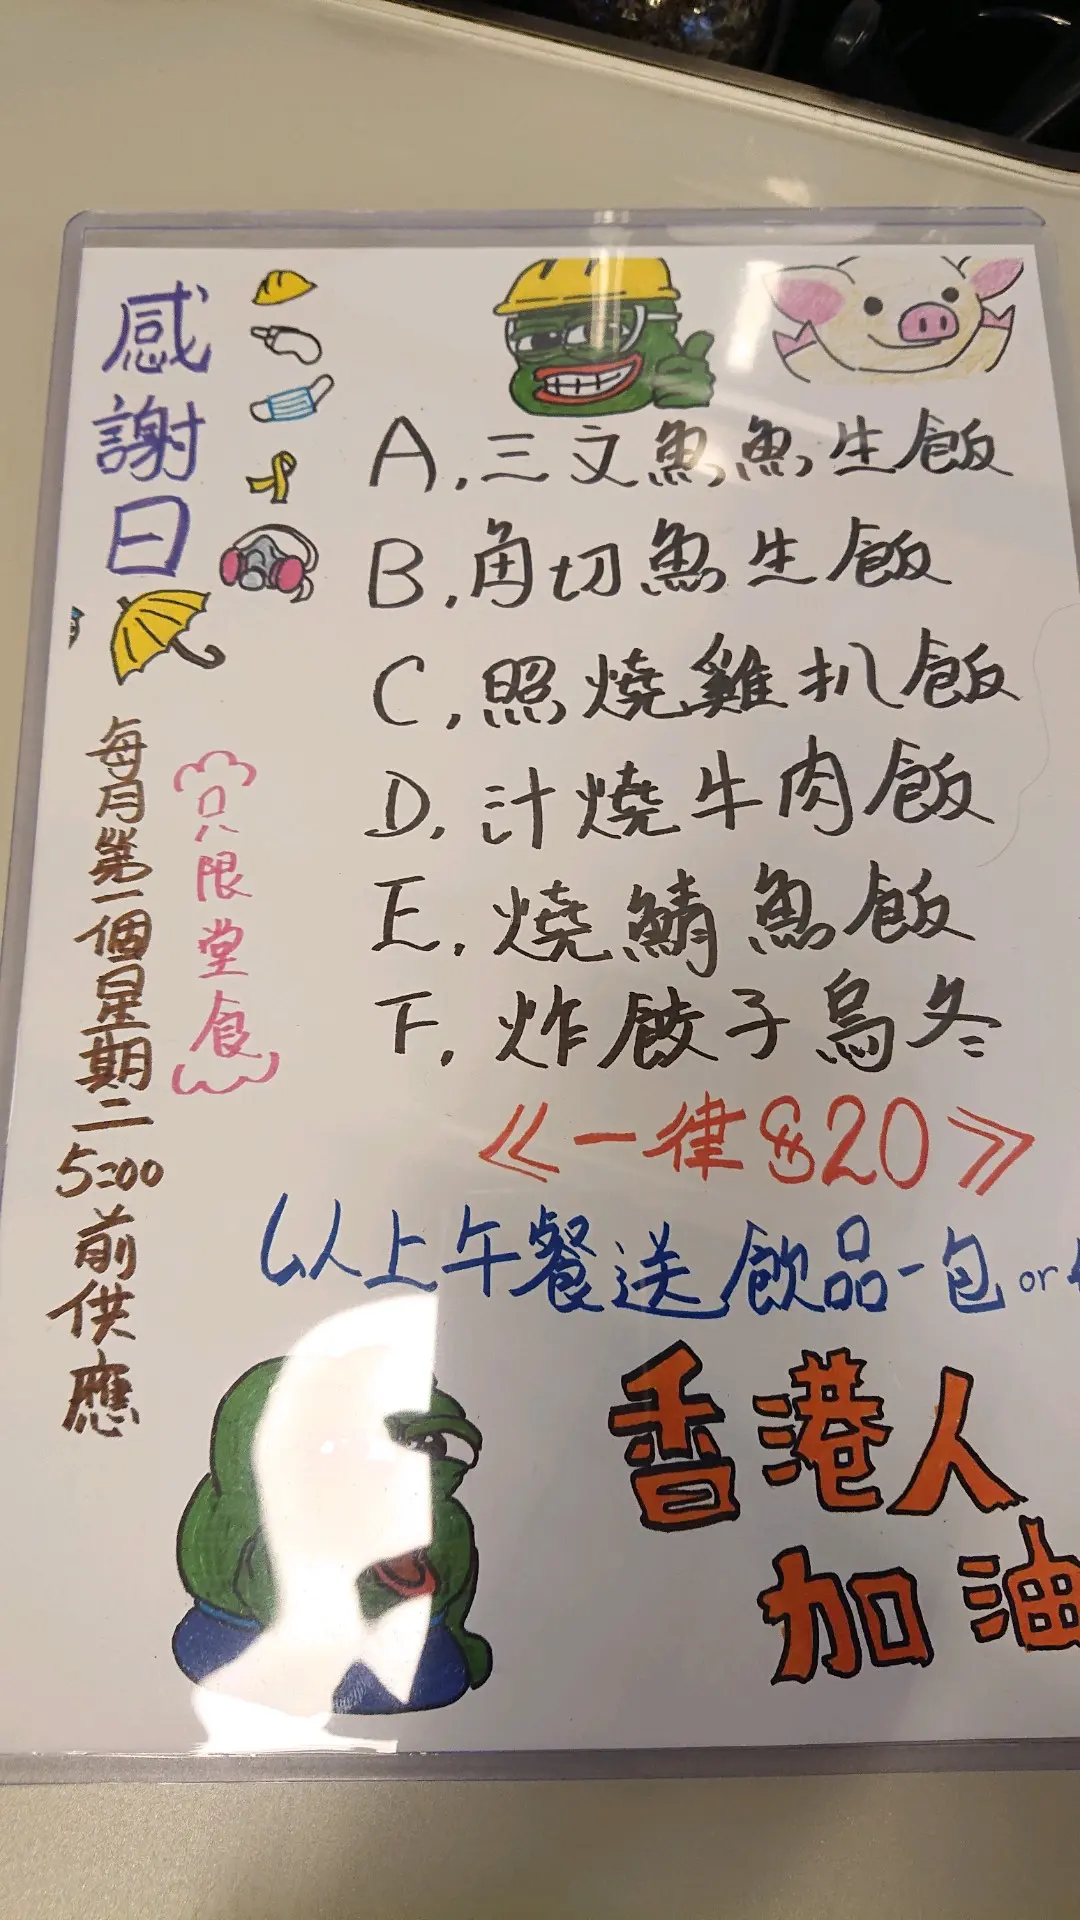 感謝日
每月第一個星期二5:00前供應
只限堂食
A.三文魚魚生飯
B.角切魚生飯
C.照燒雞扒飯
D.汁燒牛肉飯
E.燒鯖魚飯
F.炸餃子烏冬
《一律$20》
以上午餐送飲品一包or
香港人
加油